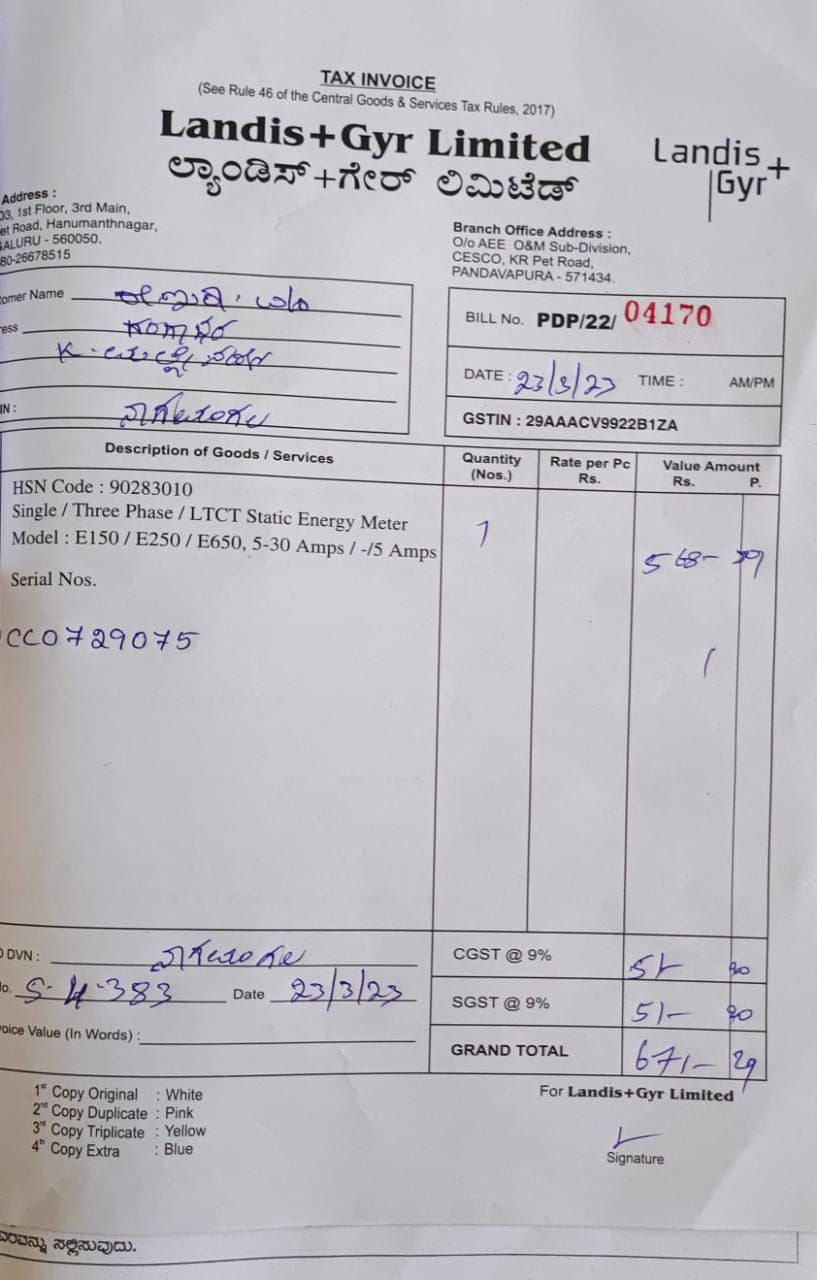 TAX INVOICE
(See Rule 46 of the Central Goods & Services Tax Rules, 2017)
Landis+Gyr Limited
ಲ್ಯಾಂಡಿಸ್+ಗೇರ್ ಲಿಮಿಟೆಡ್
Landis+
Gyr
Address :
03, 1st Floor, 3rd Main,
et Road, Hanumanthnagar,
ALURU - 560050.
80-26678515
Branch Office Address :
O/o AEE O&M Sub-Division,
CESCO, KR Pet Road,
PANDAVAPURA - 571434.
omer Name
ess
IN :
BILL No. PDP/22/ 04170
DATE : 23/3/23 TIME : AM/PM
GSTIN : 29AAACV9922B1ZA
Description of Goods / Services
Quantity (Nos.)
Rate per Pc Rs.
Value Amount
Rs. P.
HSN Code : 90283010
Single / Three Phase / LTCT Static Energy Meter
Model : E150 / E250 / E650, 5-30 Amps / -/5 Amps
1
568-
Serial Nos.
CC0729075
DVN :
o. S-4-383 Date 23/3/23
oice Value (In Words) :
CGST @ 9% 51- 20
SGST @ 9% 51- 20
GRAND TOTAL 671- 29
1st Copy Original : White
2nd Copy Duplicate : Pink
3rd Copy Triplicate : Yellow
4th Copy Extra : Blue
For Landis+Gyr Limited
Signature
ಸಲ್ಲಿಸುವುದು.